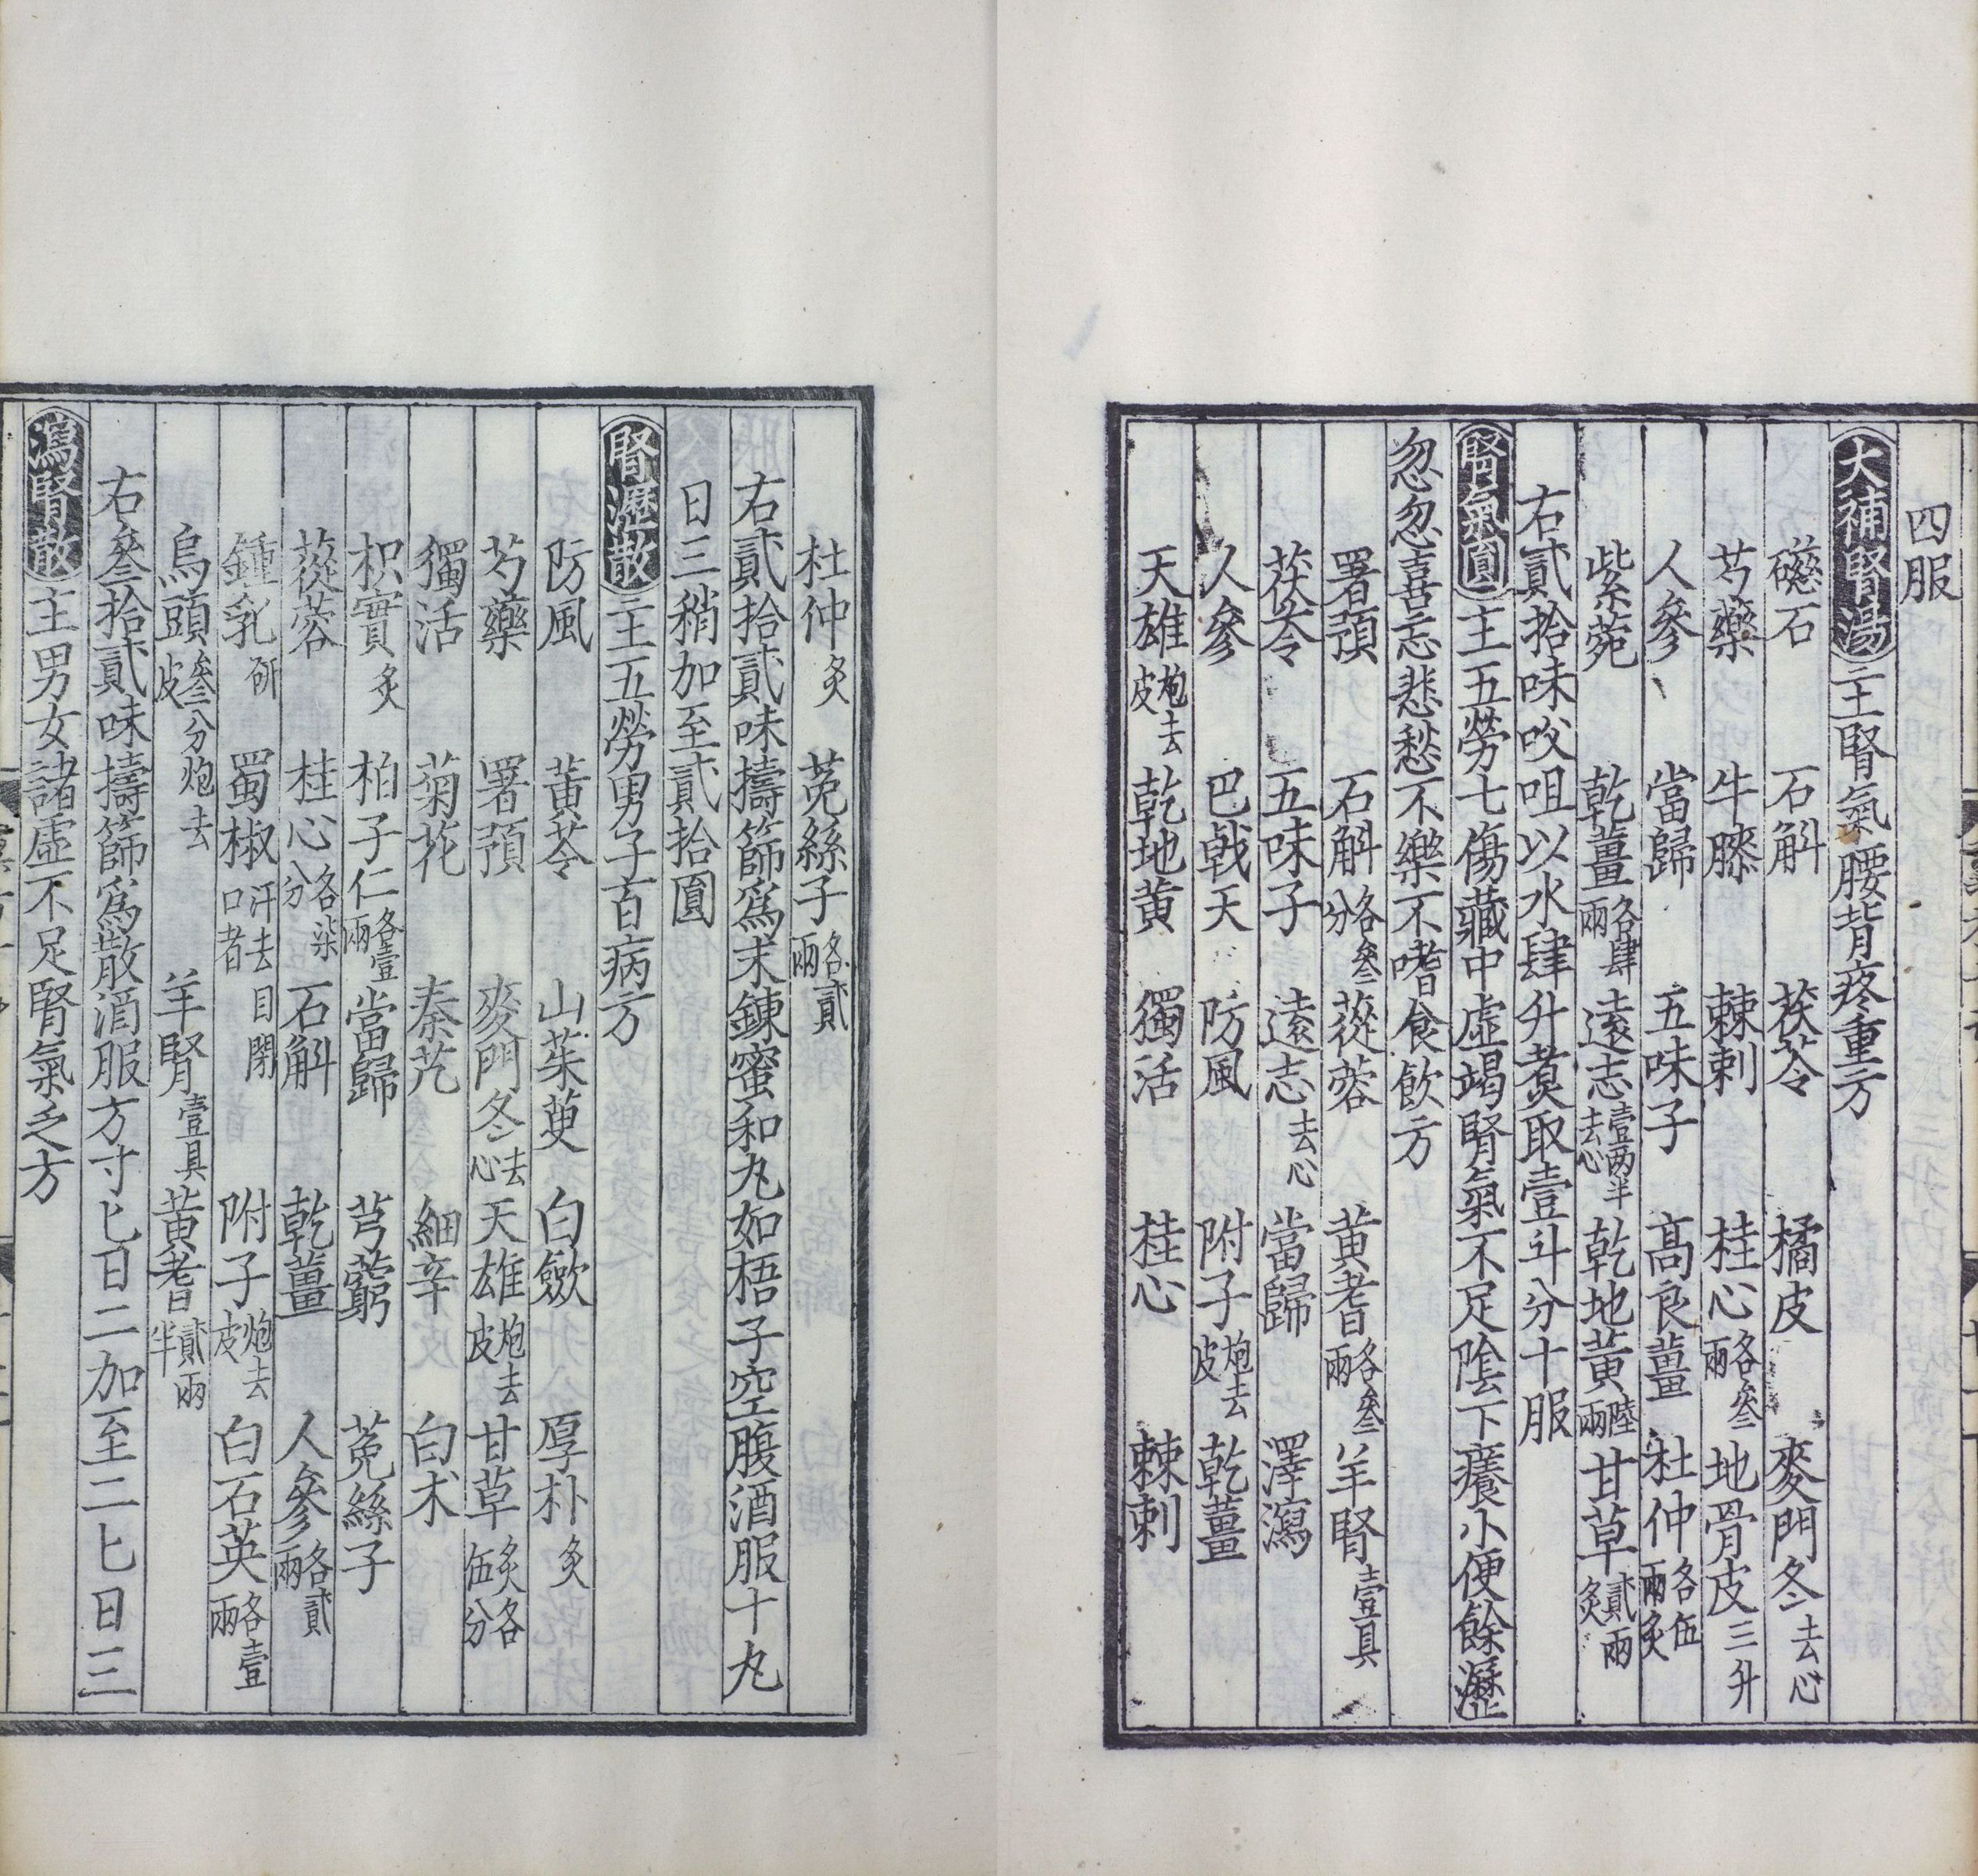 四服
大補腎湯 主腎氣腰背疼重方
磁石 石斛 茯苓 橘皮 麥門冬去心
芍藥 牛膝 棘刺 桂心各叄兩 地骨皮三升
人參 當歸 五味子 高良薑 杜仲各伍兩炙
紫菀 乾薑各肆兩 遠志壹兩半去心 乾地黃陸兩 甘草貳兩炙
右貳拾味㕮咀以水肆升煑取壹斗分十服
腎氣圓 主五勞七傷藏中虛竭腎氣不足陰下癢小便餘瀝
忽忽喜忘悲愁不樂不嗜食飲方
署預 石斛各叄分 蓯蓉 黃耆各叄兩 羊腎壹具
茯苓 五味子 遠志去心 當歸 澤瀉
人參 巴戟天 防風 附子炮去皮 乾薑
天雄炮去皮 乾地黃 獨活 桂心 棘刺
杜仲炙 菟絲子各貳兩
右貳拾貳味擣篩爲末鍊蜜和丸如梧子空腹酒服十丸
日三稍加至貳拾圓
腎瀝散 主五勞男子百病方
防風 黃芩 山茱萸 白歛 厚朴炙
芍藥 署預 麥門冬去心 天雄炮去皮 甘草炙各伍分
獨活 菊花 秦艽 細辛 白朮
枳實炙 柏子仁各壹兩 當歸 芎藭 菟絲子
蓯蓉 桂心各柒分 石斛 乾薑 人參各貳兩
鍾乳研 蜀椒汗去目閉口者 附子炮去皮 白石英各壹兩
烏頭叄分炮去皮 羊腎壹具 黃耆貳兩半
右叄拾貳味擣篩爲散酒服方寸匕日二加至二匕日三
瀉腎散 主男女諸虛不足腎氣乏方